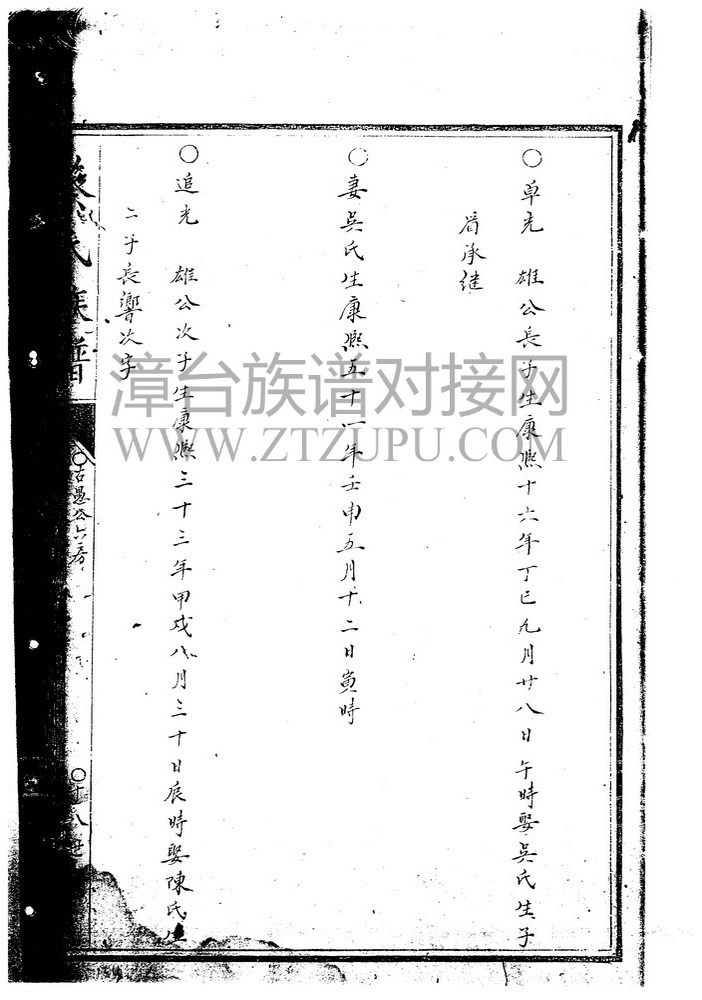 ○卓光　雄公長子生康熙十六年丁巳九月廿八日午時娶吳氏生子
眉承继
○妻吳氏生康熙五十一年壬申五月十二日寅時
○追光　雄公次子生康熙三十三年甲戌八月三十日辰時娶陳氏生
二子長響次字
氏族譜
○古愚公六房
○十八世
漳台族谱对接网
WWW.ZTZUPU.COM